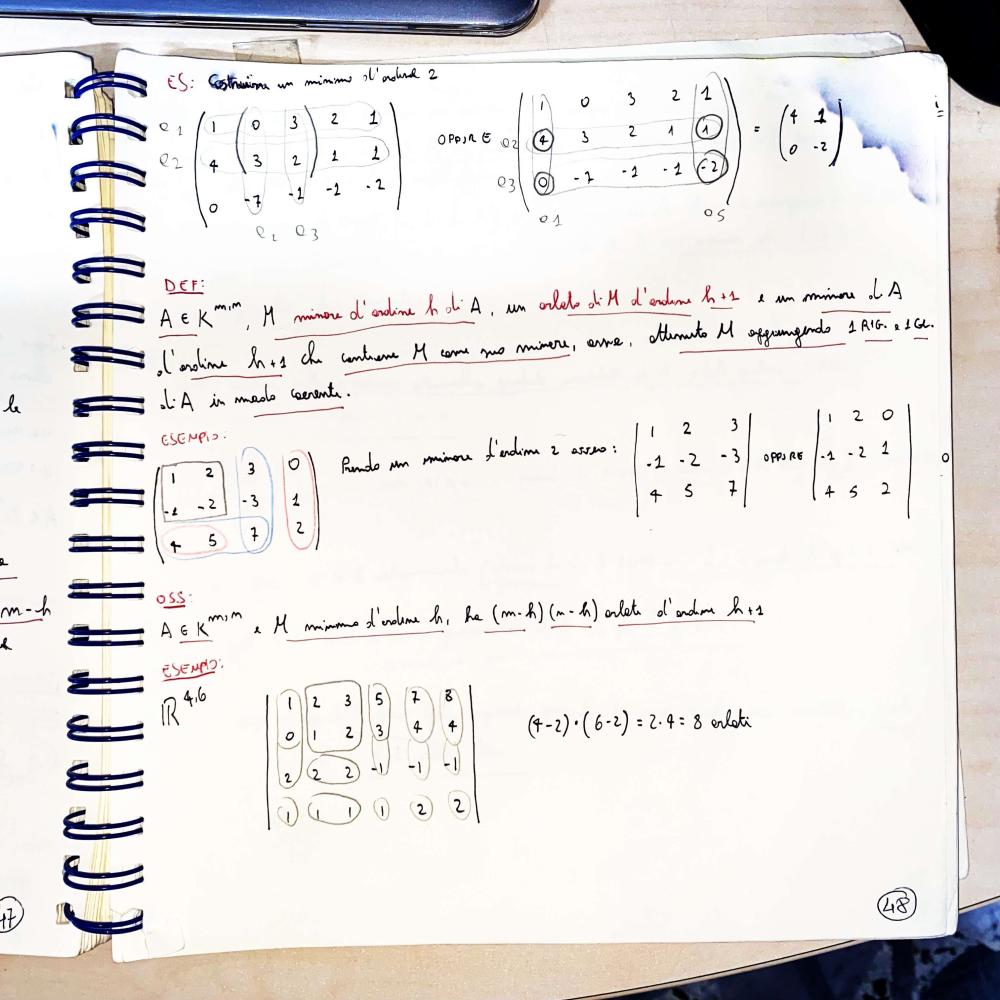 ES: Costruiamo un minimo d'ordine 2
e1 1 0 3 2 1
e2 4 3 2 1 1
0 -7 -1 -1 -2
e2 e3
OPPURE
1 0 3 2 1
e2 4 3 2 1 1
e3 0 -7 -1 -1 -2
e1 e5
= 4 1
0 -2
DEF:
A ∈ K^m,n, M minore d'ordine h di A, un orlato di M d'ordine h+1 è un minore di A
d'ordine h+1 che contiene M come suo minore, ossia, ottenuto M aggiungendo 1 RIG. e 1 COL.
di A in modo coerente.
ESEMPIO:
1 2 3 0
-1 -2 -3 1
4 5 7 2
Prendo un minore d'ordine 2 ossia:
1 2 3
-1 -2 -3
4 5 7
OPPURE
1 2 0
-1 -2 1
4 5 2
OSS:
A ∈ K^m,n e M minimo d'ordine h, ha (m-h)(n-h) orlati d'ordine h+1
ESEMPIO:
ℝ^4,6
1 2 3 5 7 8
0 1 2 3 4 4
2 2 2 -1 -1 -1
1 1 1 1 2 2
(4-2)·(6-2) = 2·4 = 8 orlati
48
47
le
m-h